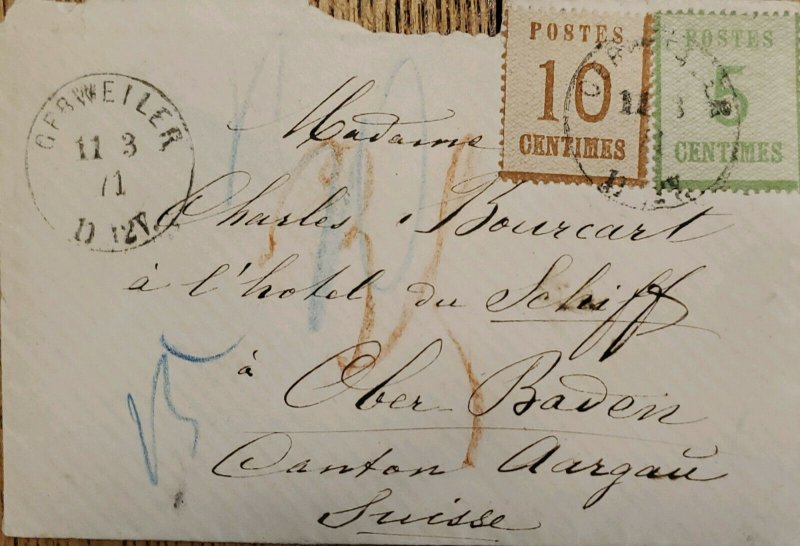 POSTES
10
CENTIMES
POSTES
5
CENTIMES
GEBWEILER
11 3
71
Madame
Charles Bourcart
à l'hotel du Schiff
à
Ober-Baden
Canton Aargau
Suisse
15